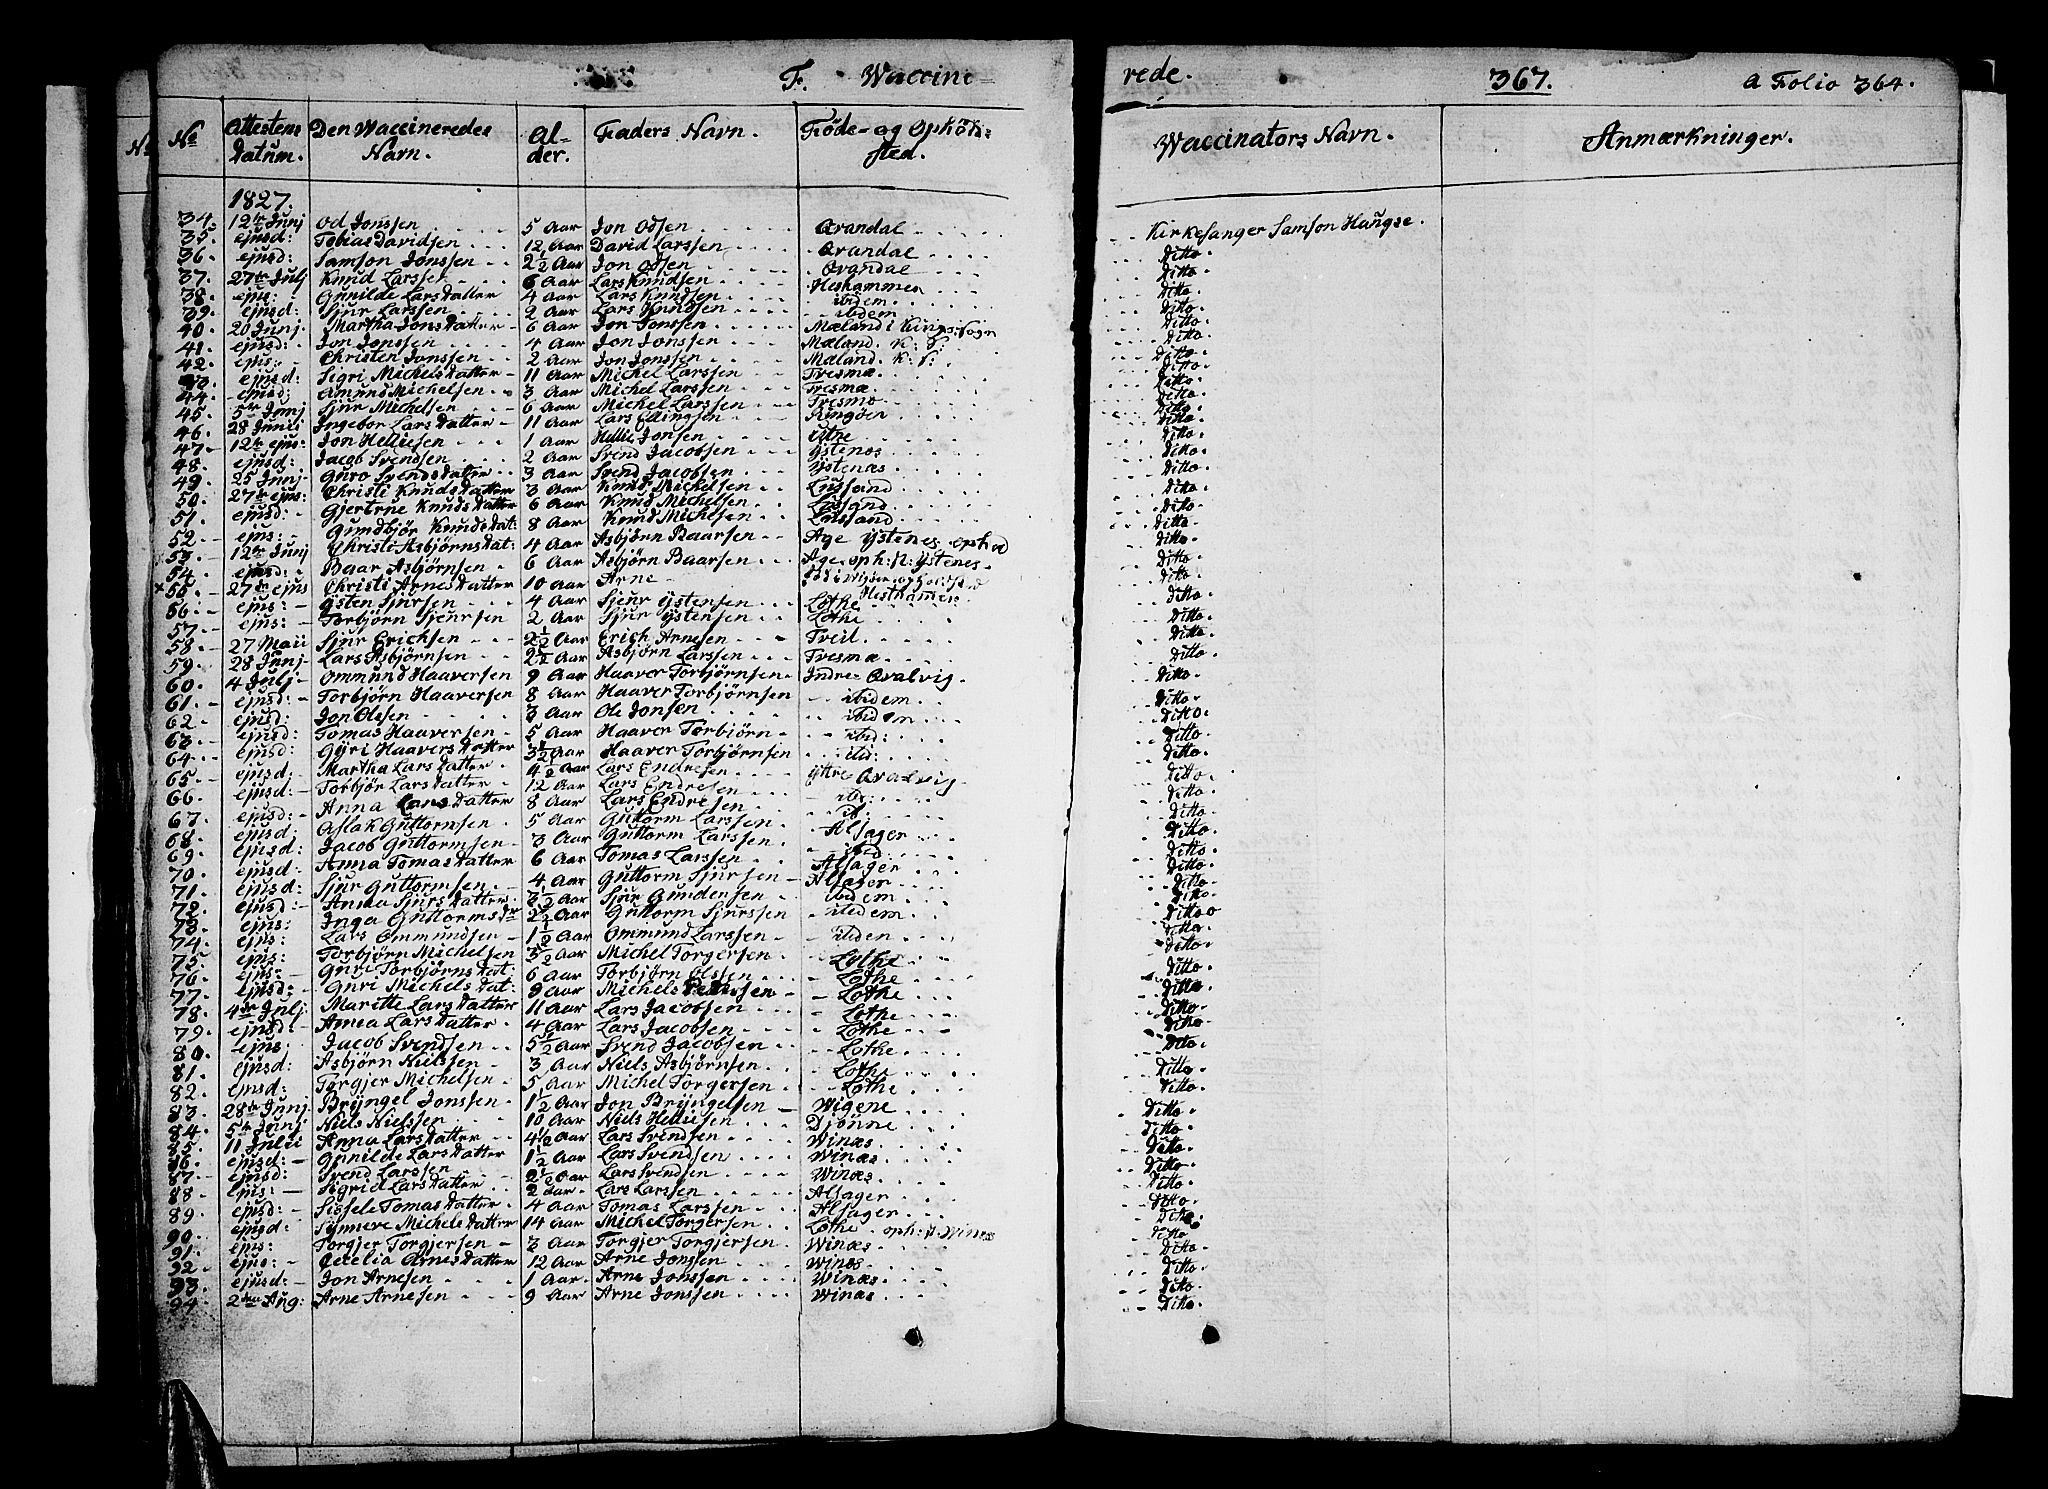 F. Waccine-
rede. 367. a Folio 364.
No Attestens Datum. Den Waccineredes Navn. Al-der. Faders Navn. Føde- og Opholds-sted. Waccinators Navn. Anmærkninger.
1827.
34. 12te Junj Od Jonssen 5 Aar Jon Odsen Qvandal Kirkesanger Samson Haugse.
35. ejusd: Tobias Davidsen 12 Aar David Larssen Qvandal Ditto.
36. ejusd: Samson Jonssen 2½ Aar Jon Odsen Qvandal Ditto.
37. 27de Julj Knud Larssen 6 Aar Lars Knudsen Heshammen Ditto.
38. ejus: Gunilde Larsdatter 4 Aar Lars Knudsen ibidem Ditto.
39. ejusd: Sjur Larssen 2 Aar Lars Knudsen ibidem Ditto.
40. 20 Junj Martha Jonsdatter 6 Aar Jon Jonssen Mæland i Kings: Sogn Ditto.
41. ejusd: Jon Jonssen 4 Aar Jon Jonssen Mæland. K: S: Ditto.
42. ejus: Christen Jonssen 2 Aar Jon Jonssen Mæland. K: S: Ditto.
43. ejusd: Sigri Michelsdatter 11 Aar Michel Larssen Tresmæ. Ditto.
44. ejusd: Amund Michelsen 3 Aar Michel Larssen Tresmæ. Ditto.
45. 5te Junj Sjur Michelsen 6 Aar Michel Larssen Tresmo Ditto.
46. 28 Junii Ingebor Larsdatter 11 Aar Lars Ringøen Ditto.
47. 12te ejus: Jon Helliesen 1 Aar Hellie Jonsen Ditto.
48. ejusd: Jacob Svendsen 2 Aar Svend Jacobsen Ystenes Ditto.
49. 25 Junj Guro Svendsdatter 3 Aar Svend Jacobsen Ystenæs Ditto.
50. 27de ejus: Christi Knudsdatter 3 Aar Knud Michelsen Lussand Ditto.
51. ejusd: Gjertrue Knudsdatter 6 Aar Knud Michelsen Lussand Ditto.
52 ejus: Gundbjør Knudsdat: 8 Aar Knud Michelsen Lussand Ditto.
53. 12te Junj Christi Asbjørnsdat: 4 Aar Asbjørn Baarsen Age Ystenes Ditto.
54. ejusd: Baar Asbjørnsen 6 Aar Asbjørn Baarsen Age oph: p: Ystenes Ditto.
x 55. 27de ejus Christi Arnesdatter 10 Aar Arne Hesthamen Ditto.
56. ejus: Ysten Sjursen 4 Aar Sjur Ystensen Lothe Ditto.
57. ejus: Torbjørn Sjursen 2 Aar Sjur Ystensen Lothe Ditto.
58. 27 Maii Sjur Erichsen 2½ Aar Erich Arnesen Tveit. Ditto.
59. 28 Junj Lars Asbjørnsen 2½ Aar Asbjørn Larssen Tresmæ Ditto.
60. 4 Julj Ommund Haaversen 9 Aar Haaver Torbjørnsen Indre Qvalvig. Ditto.
61. ejusd: Torbjørn Haaversen 8 Aar Haaver Torbjørnsen ibidem Ditto.
62 ejusd: Jon Olssen 3 Aar Ole Jonsen ibidem Ditto.
63. ejusd: Tomas Haaversen 5 Aar Haaver Torbiørn ibid: Ditto.
64. ejusd: Gyri Haaversdatter 3½ Aar Haaver Torbjørnsen ibid: Ditto.
65. ejusd: Martha Larsdatter 4½ Aar Lars Endresen Yttre Qvalvig Ditto.
66. ejusd: Torbjør Larsdatter 12 Aar Lars Endresen ib: Ditto.
67. ejusd: Anna Larsdatter 8 Aar Lars Endresen ib: Ditto.
68. ejusd: Aslak Guttormsen 5 Aar Guttorm Larssen Alsager Ditto.
69. ejusd: Jacob Guttormsen 3 Aar Guttorm Larssen ibid: Ditto.
70. ejusd: Anna Tomasdatter 6 Aar Tomas Larssen Alsager Ditto.
71. ejusd: Sjur Guttormsen 4 Aar Guttorm Sjursen Alsager Ditto.
72. ejusd: Anna Sjursdatter 3½ Aar Sjur Gundersen ibidem Ditto.
73. ejus: Inga Guttormsdr 2½ Aar Guttorm Sjurssen ibidem Ditto.
74. ejus: Lars Ommundsen 1½ Aar Ommund Larssen ibidem Ditto.
75. ejus: Torbjørn Michelsen 3½ Aar Michel Torgersen Lothe Ditto.
76. ejus: Guri Torbjørnsdat: 6 Aar Torbjørn Olssen Lothe Ditto.
77. ejusd: Guri Michelsdat: 9 Aar Michels Lothe Ditto.
78. 4de Julj Maritte Larsdatter 11 Aar Lars Jacobsen Lothe Ditto.
79. ejusd: Anna Larsdatter 4 Aar Lars Jacobsen Lothe Ditto.
80. ejus: Jacob Svendsen 5½ Aar Svend Jacobsen Lothe Ditto.
81. ejusd: Asbjørn Nielssen 3 Aar Niels Asbjørnsen Lothe Ditto.
82. ejusd: Torgjer Michelsen 5 Aar Michel Torgersen Lothe Ditto.
83. 28de Junj Bryngel Jonssen 1½ Aar Jon Bryngelsen Wigene Ditto.
84. 5te Junj Niels Nielssen 10 Aar Niels Helliesen Djønne Ditto.
85. 11 Julii Anna Larsdatter 4½ Aar Lars Svendsen Winæs Ditto.
86. ejusd: Gunilde Larsdatter 1½ Aar Lars Svendsen Winæs Ditto.
87. ejusd: Svend Larssen 2½ Aar Lars Svendsen Winæs Ditto.
88. ejus: Sigrid Larsdatter 2 Aar Lars Larssen Alsager Ditto.
89. ejusd: Sissele Tomasdatter 4 Aar Tomas Larssen Alsager Ditto.
90. ejusd: Synneve Michelsdatter 14 Aar Michel Torgersen Lothe oph: p: Winæs Ditto
91. ejus: Torgjer Torgjersen 3 Aar Torgjer Torgjersen Winæs Ditto.
92. ejus: Cecelia Arnesdatter 12 Aar Arne Jonssen Winæs Ditto.
93. ejusd: Jon Arnesen 1 Aar Arne Jonssen Winæs Ditto.
94. 2den Aug: Arne Arnesen 9 Aar Arne Jonssen Winæs Ditto.